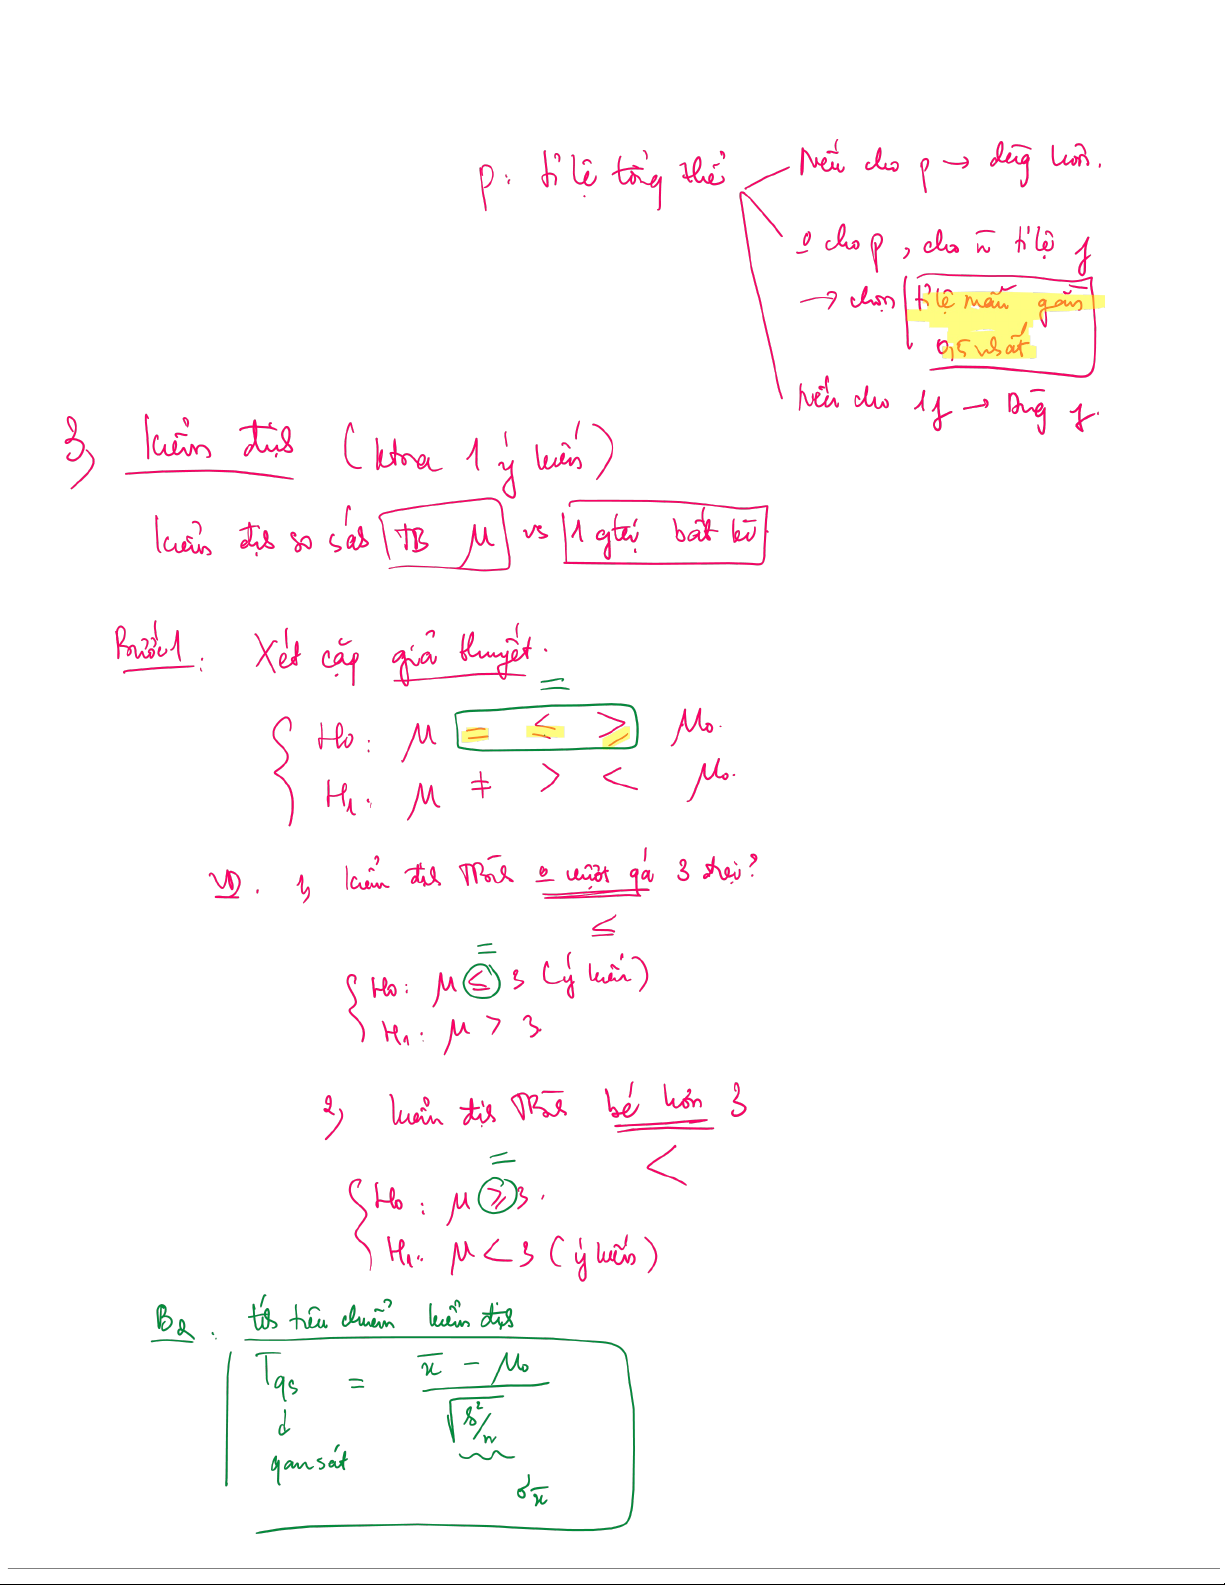 p: tỉ lệ tổng thể
Nếu cho p → dùng luôn.
o cho p, cho n tỉ lệ f
→ chọn tỉ lệ mẫu gần
0,5 nhất
Nếu cho 1 f → Dùng f.
3, kiểm định (khoa 1 ý kiến)
kiểm định so sánh TB μ vs 1 gtrị bất kì
Bước 1: Xét cặp giả thuyết.
=
H0: μ = ≤ ≥ μ0.
H1: μ ≠ > < μ0.
VD. 1, kiểm định TBình o vượt quá 3 triệu?
≤
=
H0: μ ≤ 3 (ý kiến)
H1: μ > 3
2, kiểm định TBình bé hơn 3
<
=
H0: μ ≥ 3.
H1: μ < 3 (ý kiến)
B2. tính tiêu chuẩn kiểm định
Tqs = (x̄ - μ0) / √(s²/n)
quan sát
σx̄